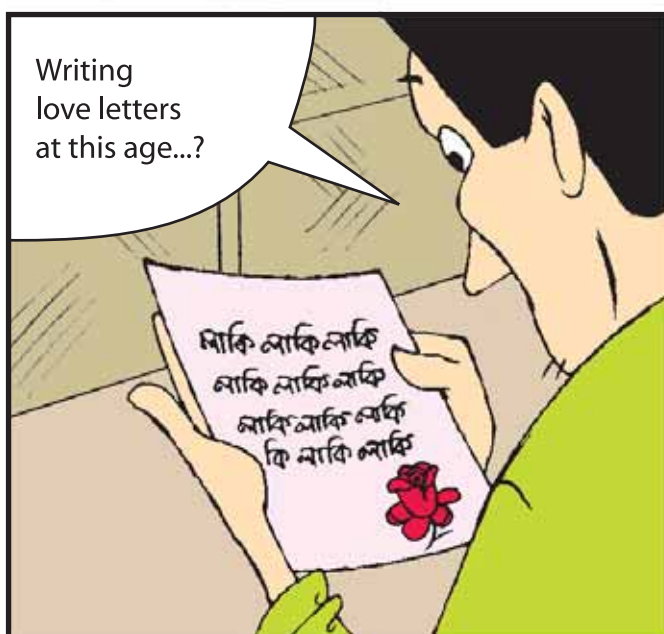 Writing
love letters
at this age...?
লাকি লাকি লাকি
লাকি লাকি লাকি
লাকি লাকি লাকি
কি লাকি লাকি